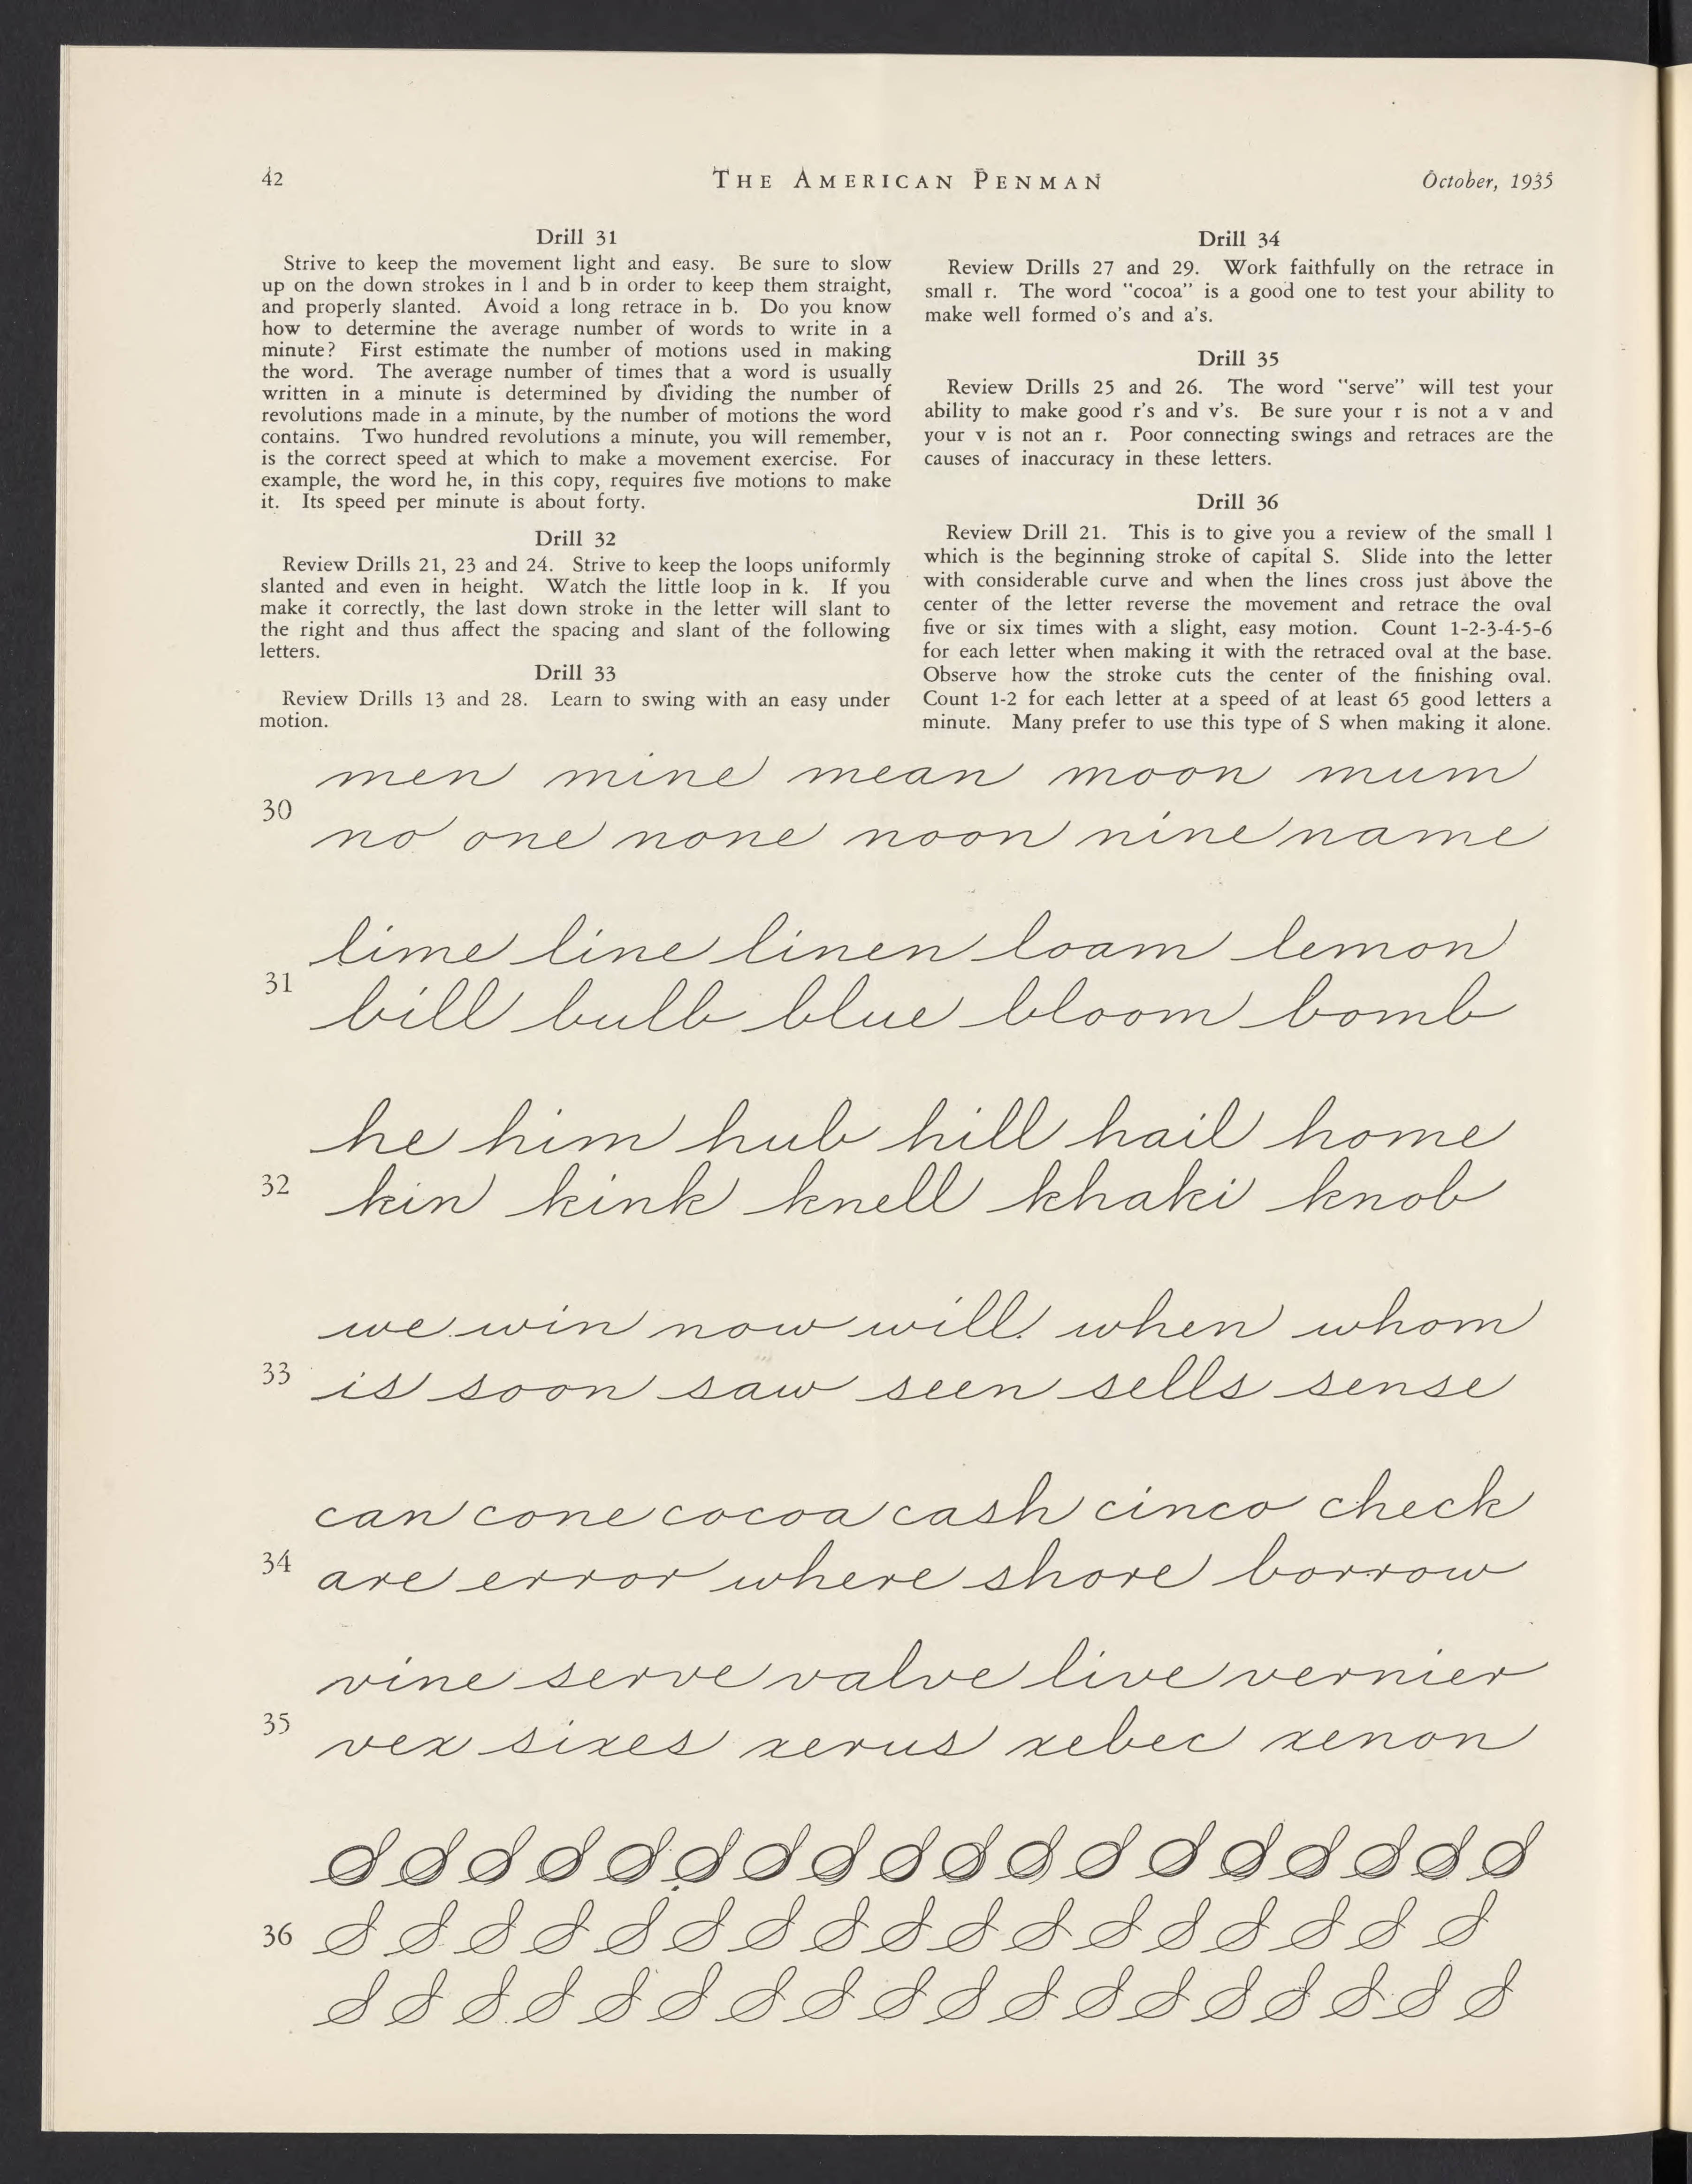 42
THE AMERICAN PENMAN
October, 1935
Drill 31
Strive to keep the movement light and easy. Be sure to slow
up on the down strokes in l and b in order to keep them straight,
and properly slanted. Avoid a long retrace in b. Do you know
how to determine the average number of words to write in a
minute? First estimate the number of motions used in making
the word. The average number of times that a word is usually
written in a minute is determined by dividing the number of
revolutions made in a minute, by the number of motions the word
contains. Two hundred revolutions a minute, you will remember,
is the correct speed at which to make a movement exercise. For
example, the word he, in this copy, requires five motions to make
it. Its speed per minute is about forty.
Drill 32
Review Drills 21, 23 and 24. Strive to keep the loops uniformly
slanted and even in height. Watch the little loop in k. If you
make it correctly, the last down stroke in the letter will slant to
the right and thus affect the spacing and slant of the following
letters.
Drill 33
Review Drills 13 and 28. Learn to swing with an easy under
motion.
Drill 34
Review Drills 27 and 29. Work faithfully on the retrace in
small r. The word "cocoa" is a good one to test your ability to
make well formed o's and a's.
Drill 35
Review Drills 25 and 26. The word "serve" will test your
ability to make good r's and v's. Be sure your r is not a v and
your v is not an r. Poor connecting swings and retraces are the
causes of inaccuracy in these letters.
Drill 36
Review Drill 21. This is to give you a review of the small l
which is the beginning stroke of capital S. Slide into the letter
with considerable curve and when the lines cross just above the
center of the letter reverse the movement and retrace the oval
five or six times with a slight, easy motion. Count 1-2-3-4-5-6
for each letter when making it with the retraced oval at the base.
Observe how the stroke cuts the center of the finishing oval.
Count 1-2 for each letter at a speed of at least 65 good letters a
minute. Many prefer to use this type of S when making it alone.
men mine mean moon mum
30
no one none noon nine name
lime line linen loam lemon
31
bill bulb blue bloom bomb
he him hub hill hail home
32
kin kink knell khaki knob
we win now will when whom
33
is soon saw seen sells sense
can cone cocoa cash cinco check
34
are error where shore borrow
vine serve valve live vernier
35
vex sixes xerus xebec xenon
S S S S S S S S S S S S S S S S S S
36
S S S S S S S S S S S S S S S S S
S S S S S S S S S S S S S S S S S S